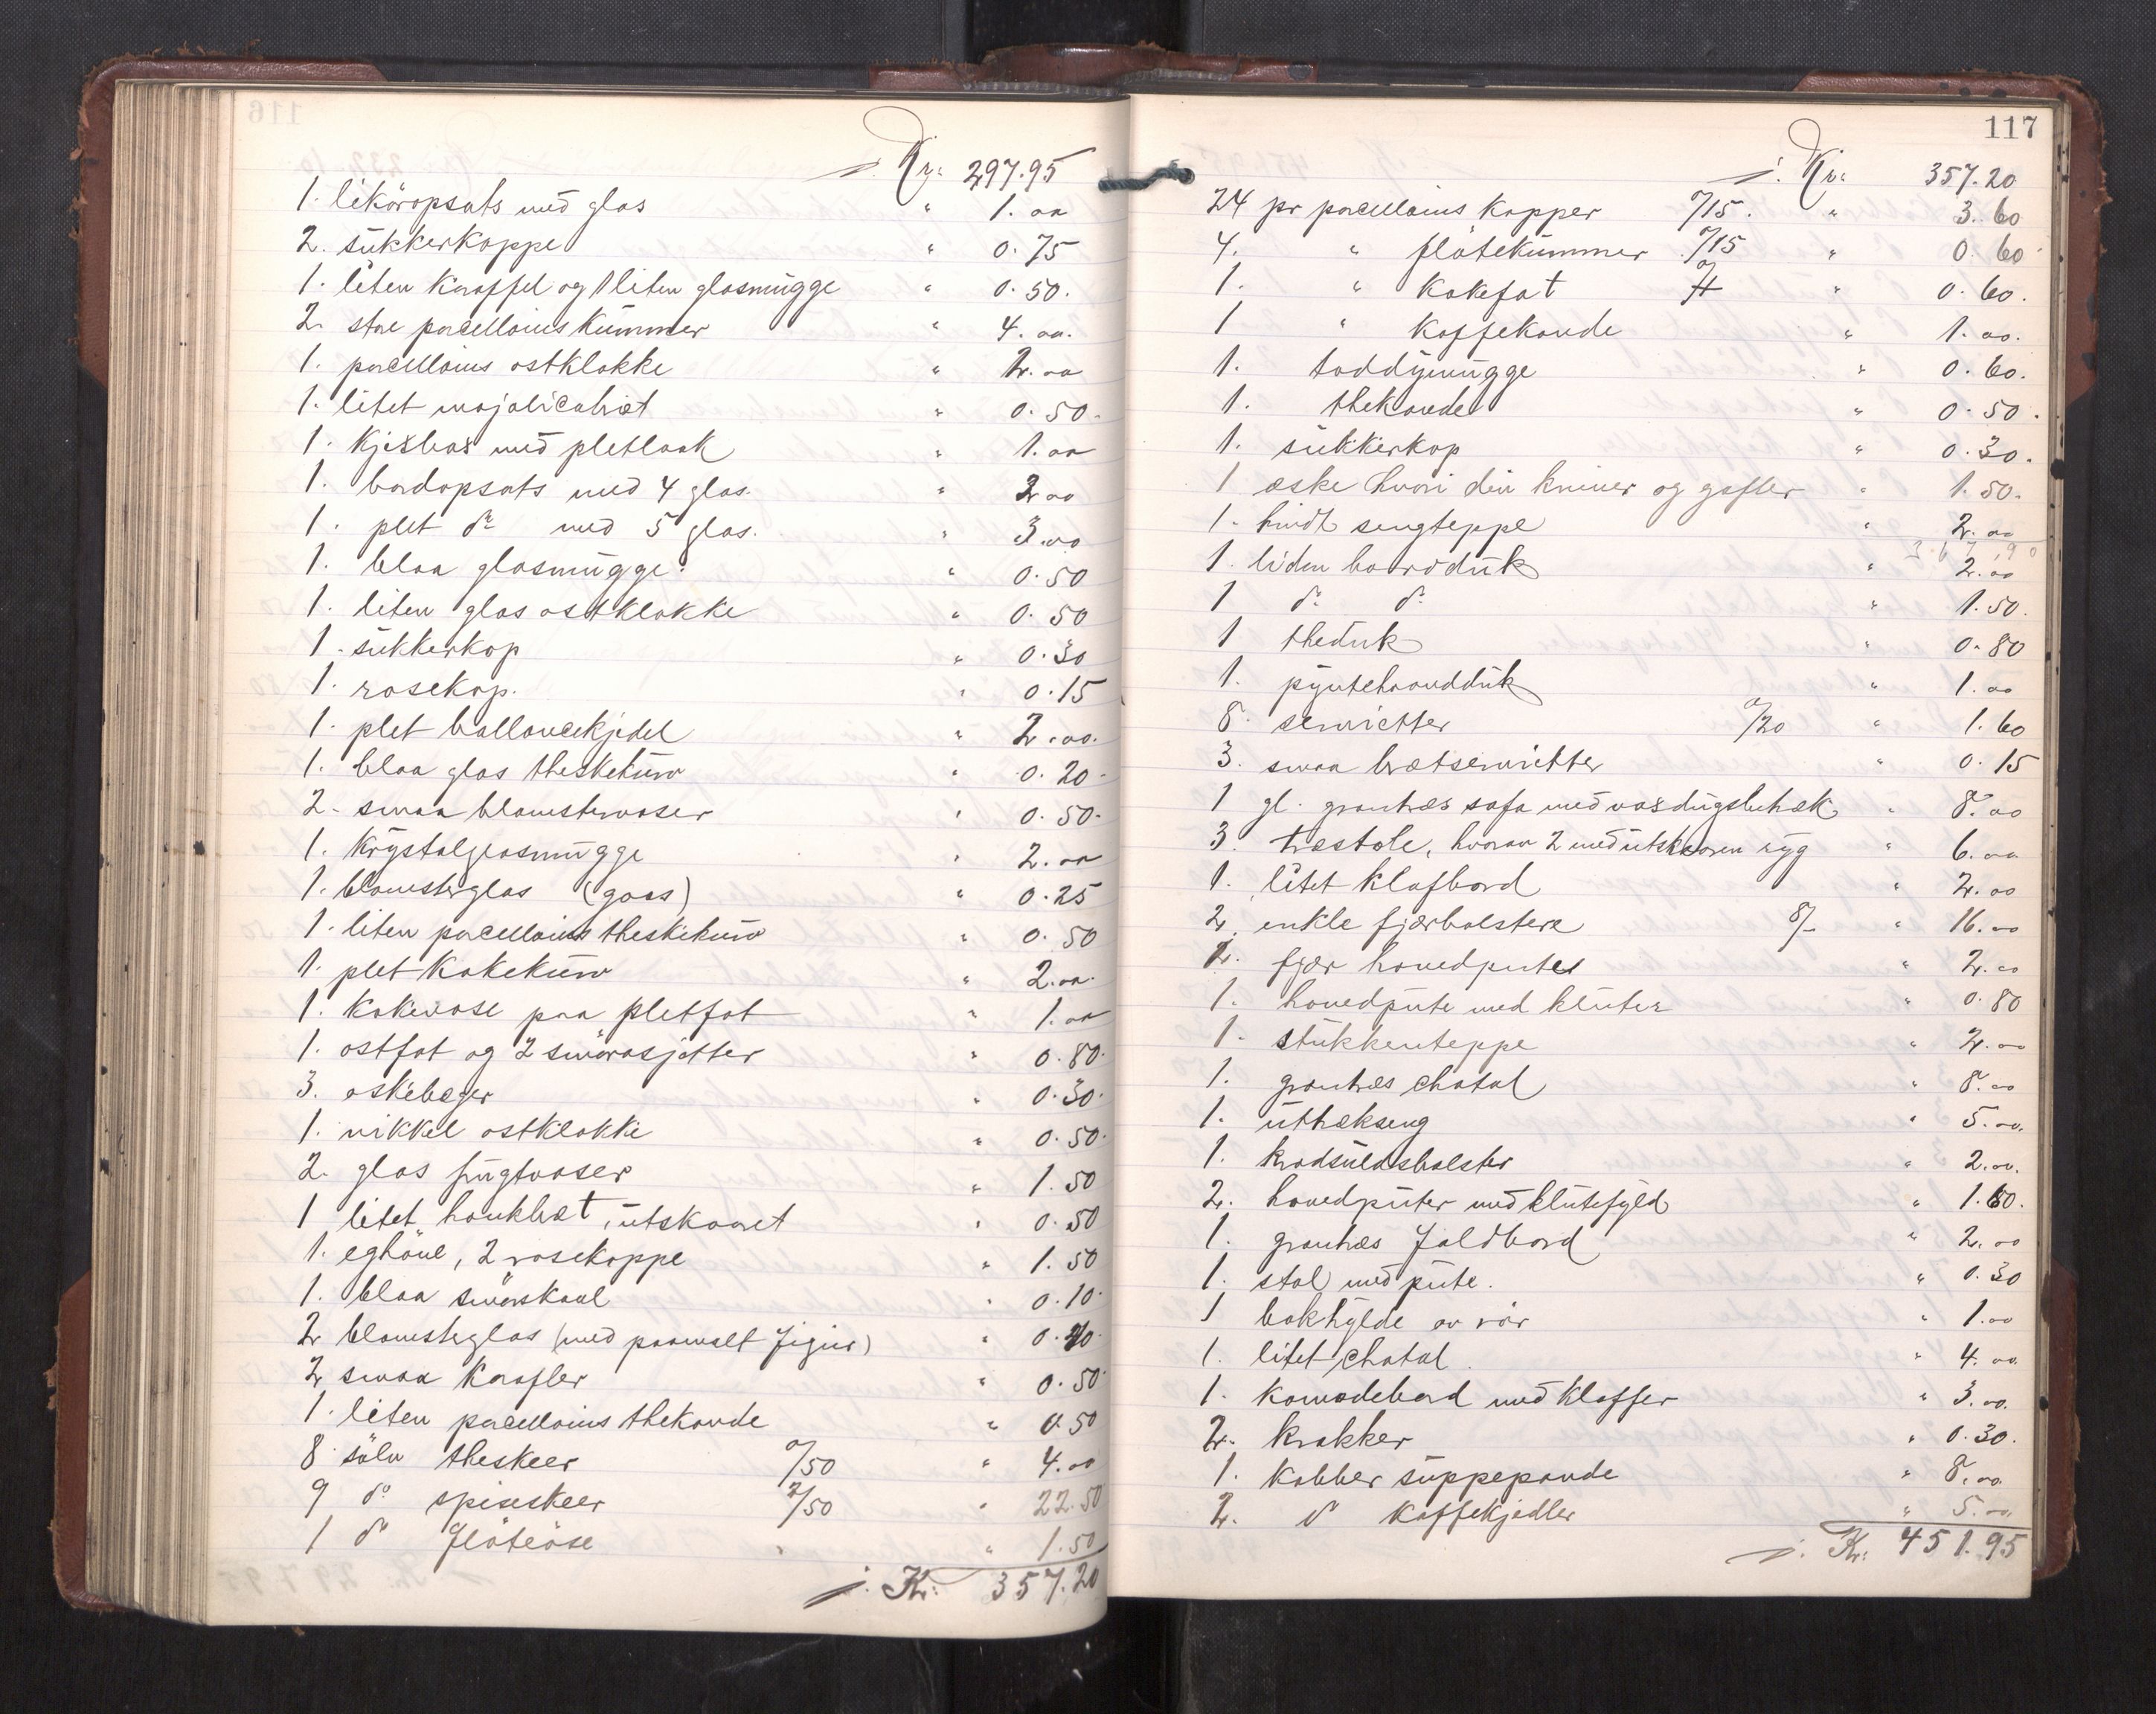 ÷ Kr. 297.95
1. liköropsats med glas " 1.00
2. sukkerkoppe " 0.75
1. liten karaffel og 1 liten glasmugge " 0.50.
2. store porcellains kummer " 4.00.
1. porcellains ostklokke " 2.00
1. litet majolicabræt " 0.50.
1. kjeksbox med pletlaak " 1.00
1. bordopsats med 4 glas. " 2.00
1. plet do med 5 glas. " 3.00
1. blaa glasmugge. " 0.50
1. liten glas ostklokke " 0.50
1. sukkerkop " 0.30
1. rosekop. " 0.15
1. plet ballancekjedel " 2.00.
1. blaa glas theskekurv " 0.20
2. smaa blomstervaser " 0.50.
1. krystalglasmugge " 2.00
1. blomsterglas (gaas) " 0.25
1. liten porcellains theskekurv " 0.50
1. plet kakekurv " 2.00.
1. kakevase paa pletfat " 1.00
1. ostfat og 2 smörasjetter " 0.80.
3. askebeger " 0.30.
1. nikkel ostklokke " 0.50.
2. glas frugtvaser " 1.50
1 litet haukbræt, utskaaret " 0.50
1. eghöne, 2 rosekoppe " 1.50
1. blaa smörskaal " 0.10.
2 blomsterglas (med paamalt figur) " 0.40.
2 smaa karafler " 0.50
1. liten porcellains thekande " 0.50
8 sölv theskeer a/50 " 4.00
9 do spiseskeer 2/50 " 22.50
1 do flöteöse " 1.50
÷ Kr. 357.20
117
÷ Kr. 357.20
24 pr porcellains kopper a/15. " 3.60
4. " flötekummer a/15 " 0.60
1. " kakefat " 0.60.
1 " kaffekande " 1.00.
1. toddymugge " 0.60.
1. thekande " 0.50.
1. sukkerkop " 0.30.
1 æske hvori div kniver og gafler " 1.50.
1. hvidt sengteppe " 2.00
367.90
1 liden bordduk " 2.00
1 do do " 1.50.
1 theduk " 0.80
1. pyntehaandduk " 1.00
8. servietter a/20 " 1.60
3. smaa brætservietter " 0.15
1 gl. grantræs sofa med voxdugsbetræk " 8.00
3. træstole, hvorav 2 med utskaaren ryg " 6.00
1. litet klafbord " 2.00
2. enkle fjærbolstere 8/- " 16.00
2. fjær hovedputer " 2.00
1. hovedpute med kluter " 0.80
1. stukkenteppe " 2.00
1. grantræs chatol " 8.00
1. uttrækseng " 5.00.
1. kradsuldsbolster " 2.00.
2. hovedputer med klutefyld " 1.60.
1. grantræs foldbord " 2.00
1. stol med pute. " 0.30
1 bokhylde av rör " 1.00
1. litet chatol. " 4.00.
1. komodebord med klaffer " 3.00.
2. krakker " 0.30.
1. kobber suppepande " 8.00.
2. do kaffekjedler " 5.00.
÷ Kr. 451.95